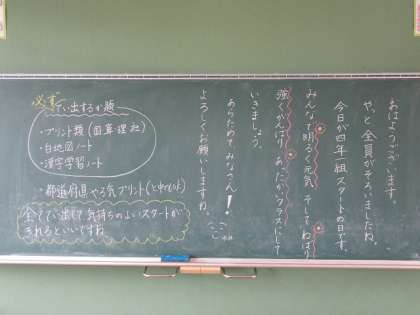 おはようございます。
やっと全員がそろいましたね。
今日が四年一組スタートの日です。
みんなで明るく元気 そして ねばり
強くがんばり あったかいクラスにして
いきましょう。
あらためて、みなさん！
よろしくお願いしますね。
必ず てい出するか題
・プリント類(国算理社)
・白地図ノート
・漢字学習ノート
・都道府県やる気プリント
全ててい出して気持ちのよいスタートが
きれるといいですね。